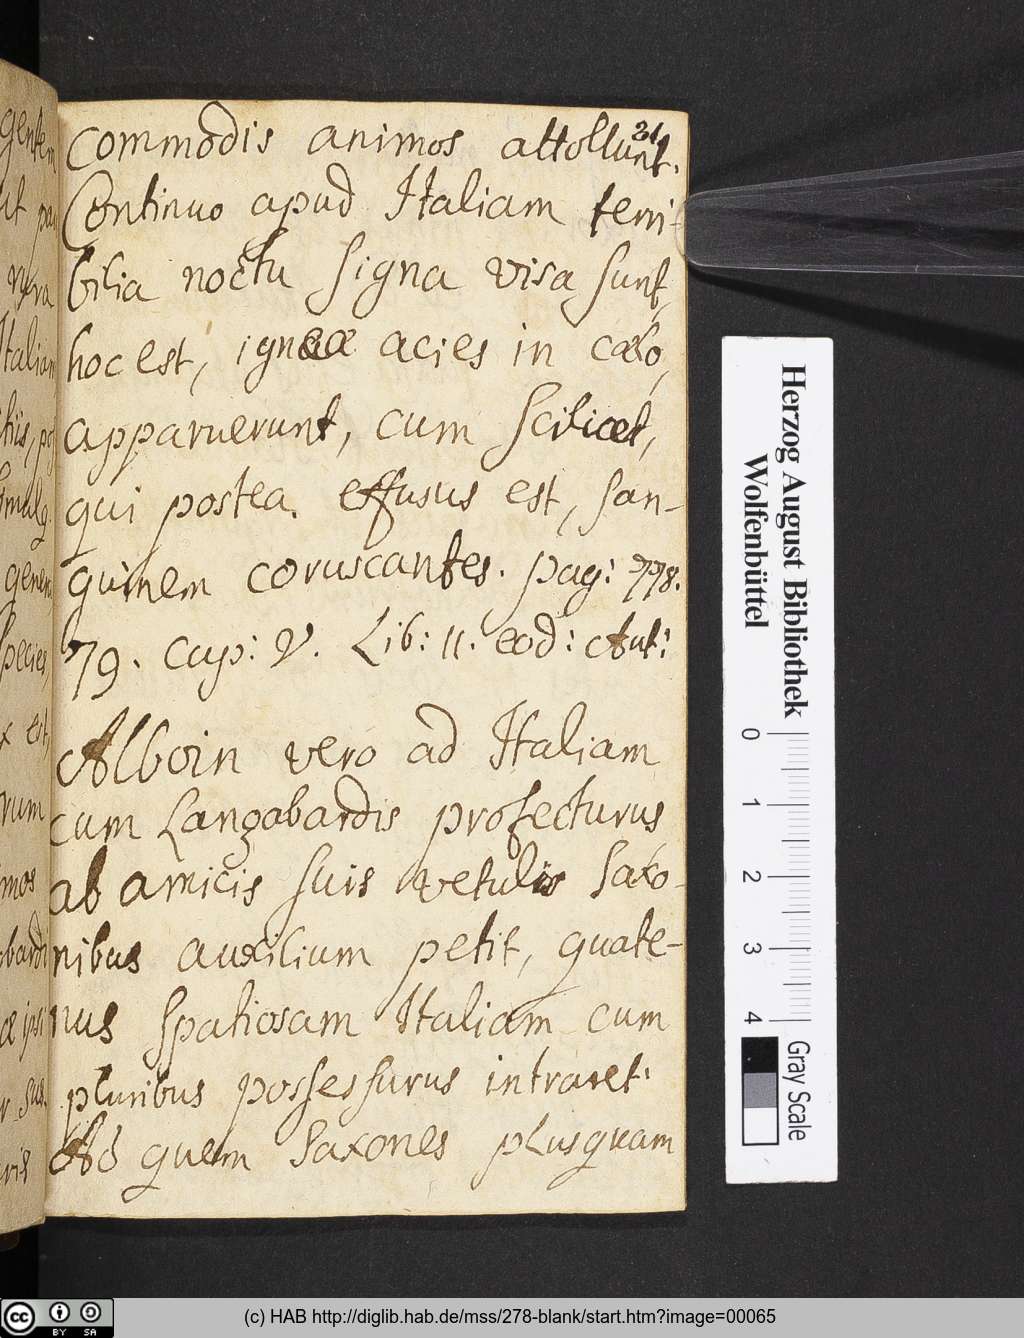 31
commodis animos attollunt.
Continuo apud Italiam terri-
bilia noctu signa visa sunt,
hoc est, igneæ acies in cælo,
apparuerunt, cum scilicet,
qui postea effusus est, san-
guinem coruscantes. pag: 778.
79. Cap: V. Lib: 11. eod: Aut:
Alboin vero ad Italiam
cum Langabardis profecturus
ab amicis suis vetulis Saxo-
nibus auxilium petit, quate-
nus spatiosam Italiam cum
pluribus possessurus intraret.
Ad quem Saxones plusquam
gentem
Italiam
genera
species,
est,
rum
mos
Herzog August Bibliothek
Wolfenbüttel
0 1 2 3 4
Gray Scale
cc BY SA
(c) HAB http://diglib.hab.de/mss/278-blank/start.htm?image=00065